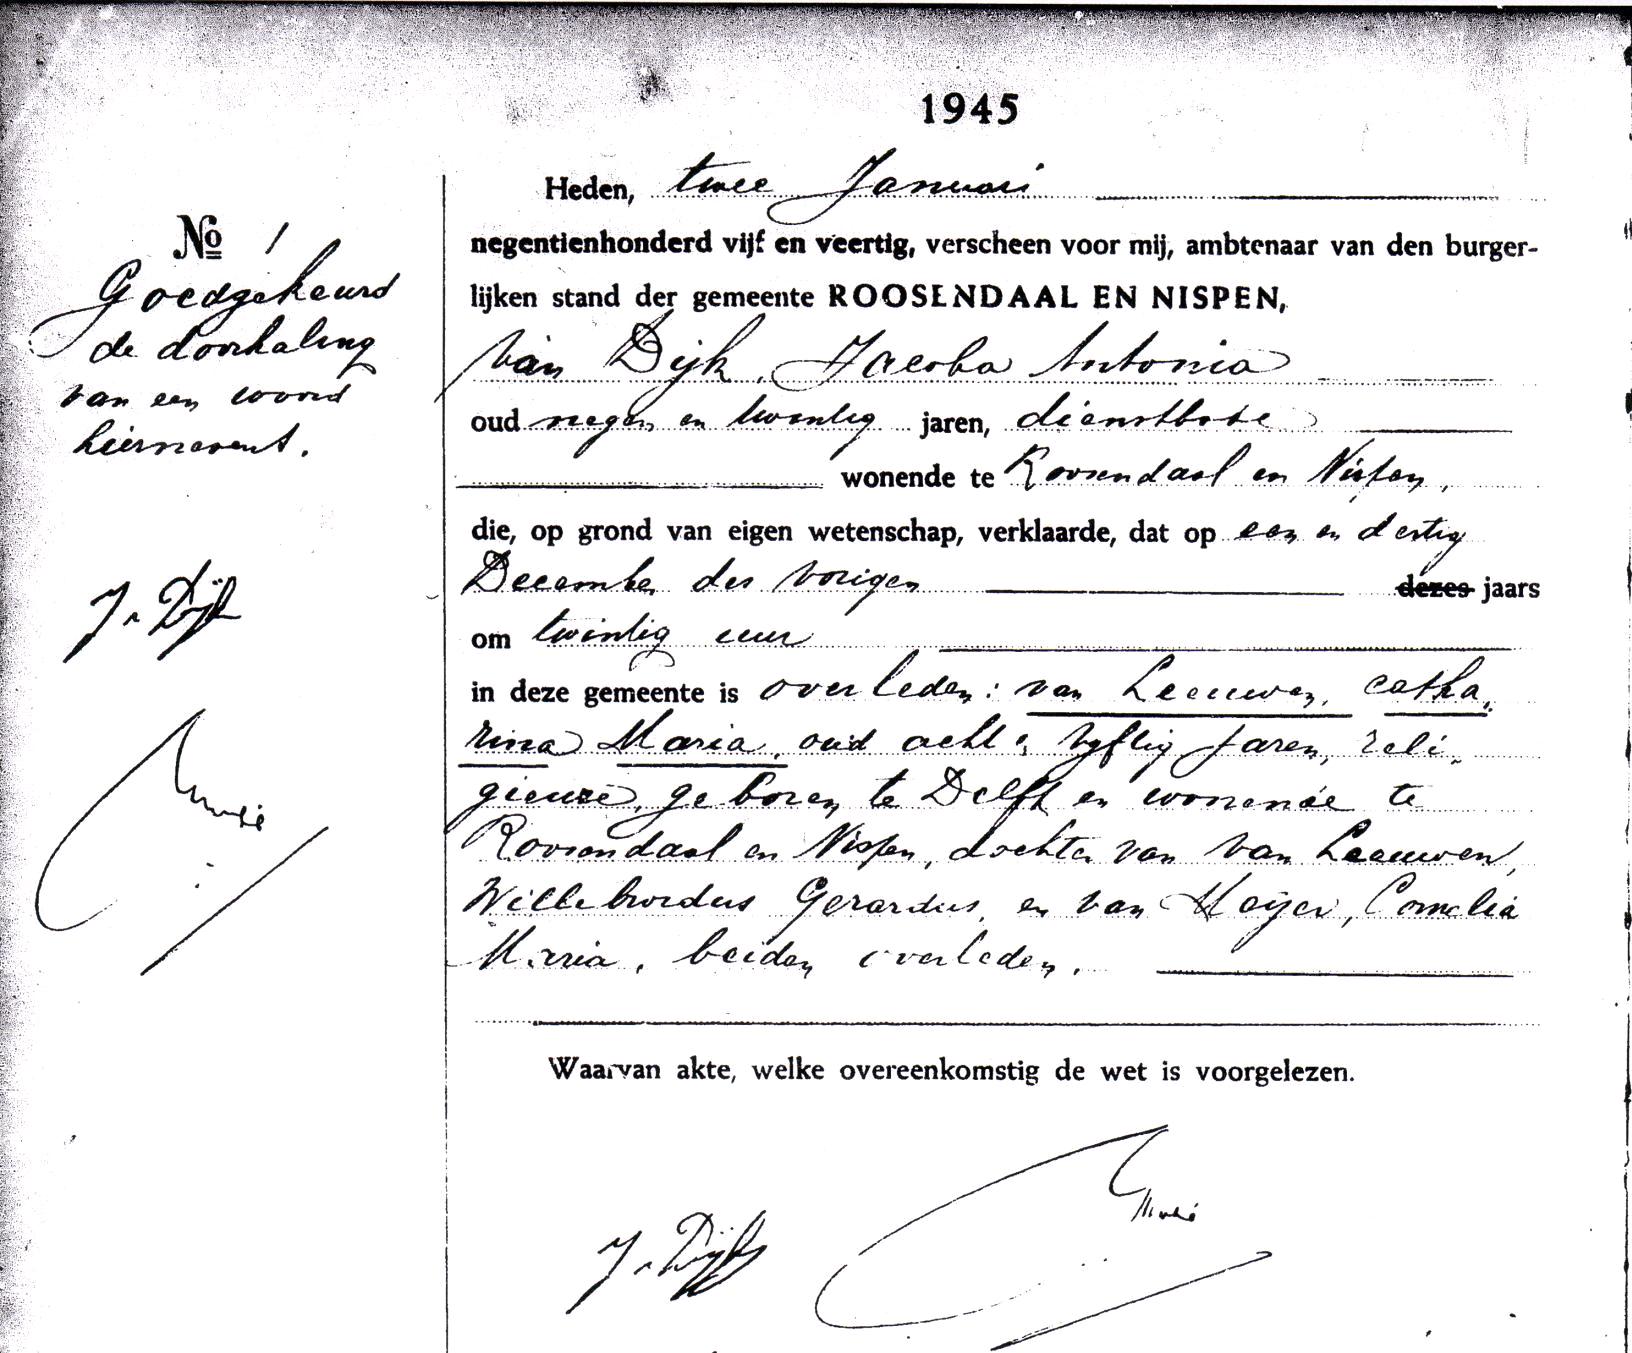 1945
Heden, twee Januari
negentienhonderd vijf en veertig, verscheen voor mij, ambtenaar van den burger-
lijken stand der gemeente ROOSENDAAL EN NISPEN,
van Dijk, Jacoba Antonia
oud negen en twintig jaren, dienstbode
wonende te Roosendaal en Nispen,
die, op grond van eigen wetenschap, verklaarde, dat op een en dertig
December des vorigen dezes jaars
om twintig uur
in deze gemeente is overleden: van Leeuwen, Catha„
rina Maria, oud acht en vyftig jaren, reli„
gieuze, geboren te Delft en wonende te
Roosendaal en Nispen, dochter van van Leeuwen,
Willebrordus Gerardus, en van Meijer, Cornelia
Maria, beiden overleden.
Waarvan akte, welke overeenkomstig de wet is voorgelezen.
J. v. Dijk
No 1
Goedgekeurd
de doorhaling
van een woord
hiernevens.
J. v. Dijk